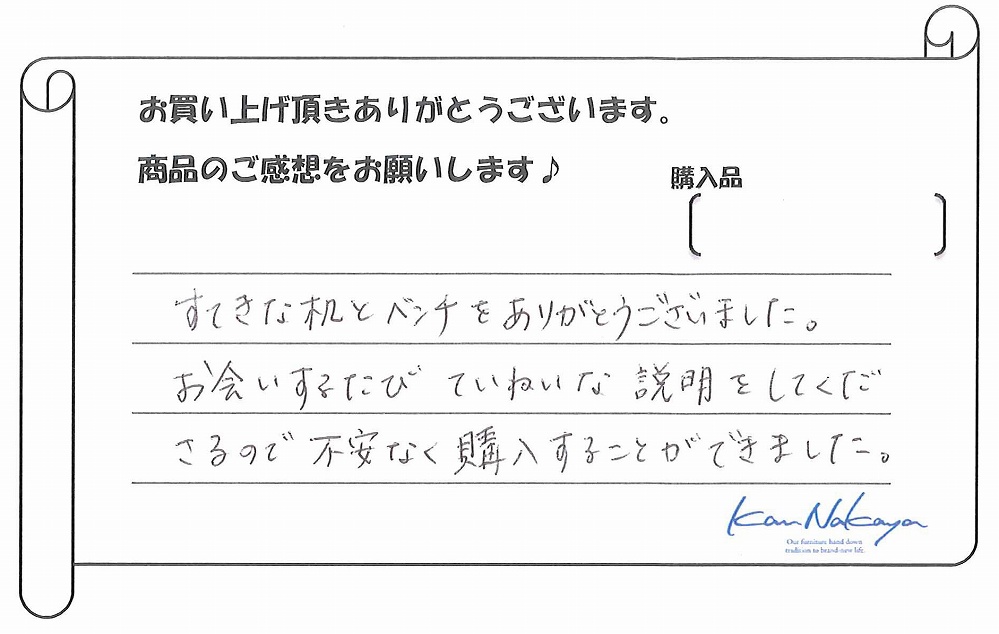 お買い上げ頂きありがとうございます。
商品のご感想をお願いします♪
購入品
すてきな机とベンチをありがとうございました。
お会いするたび ていねいな 説明をしてくだ
さるので 不安なく購入することができました。
KanNakaya
Our furniture hand down
tradition to brand-new life.